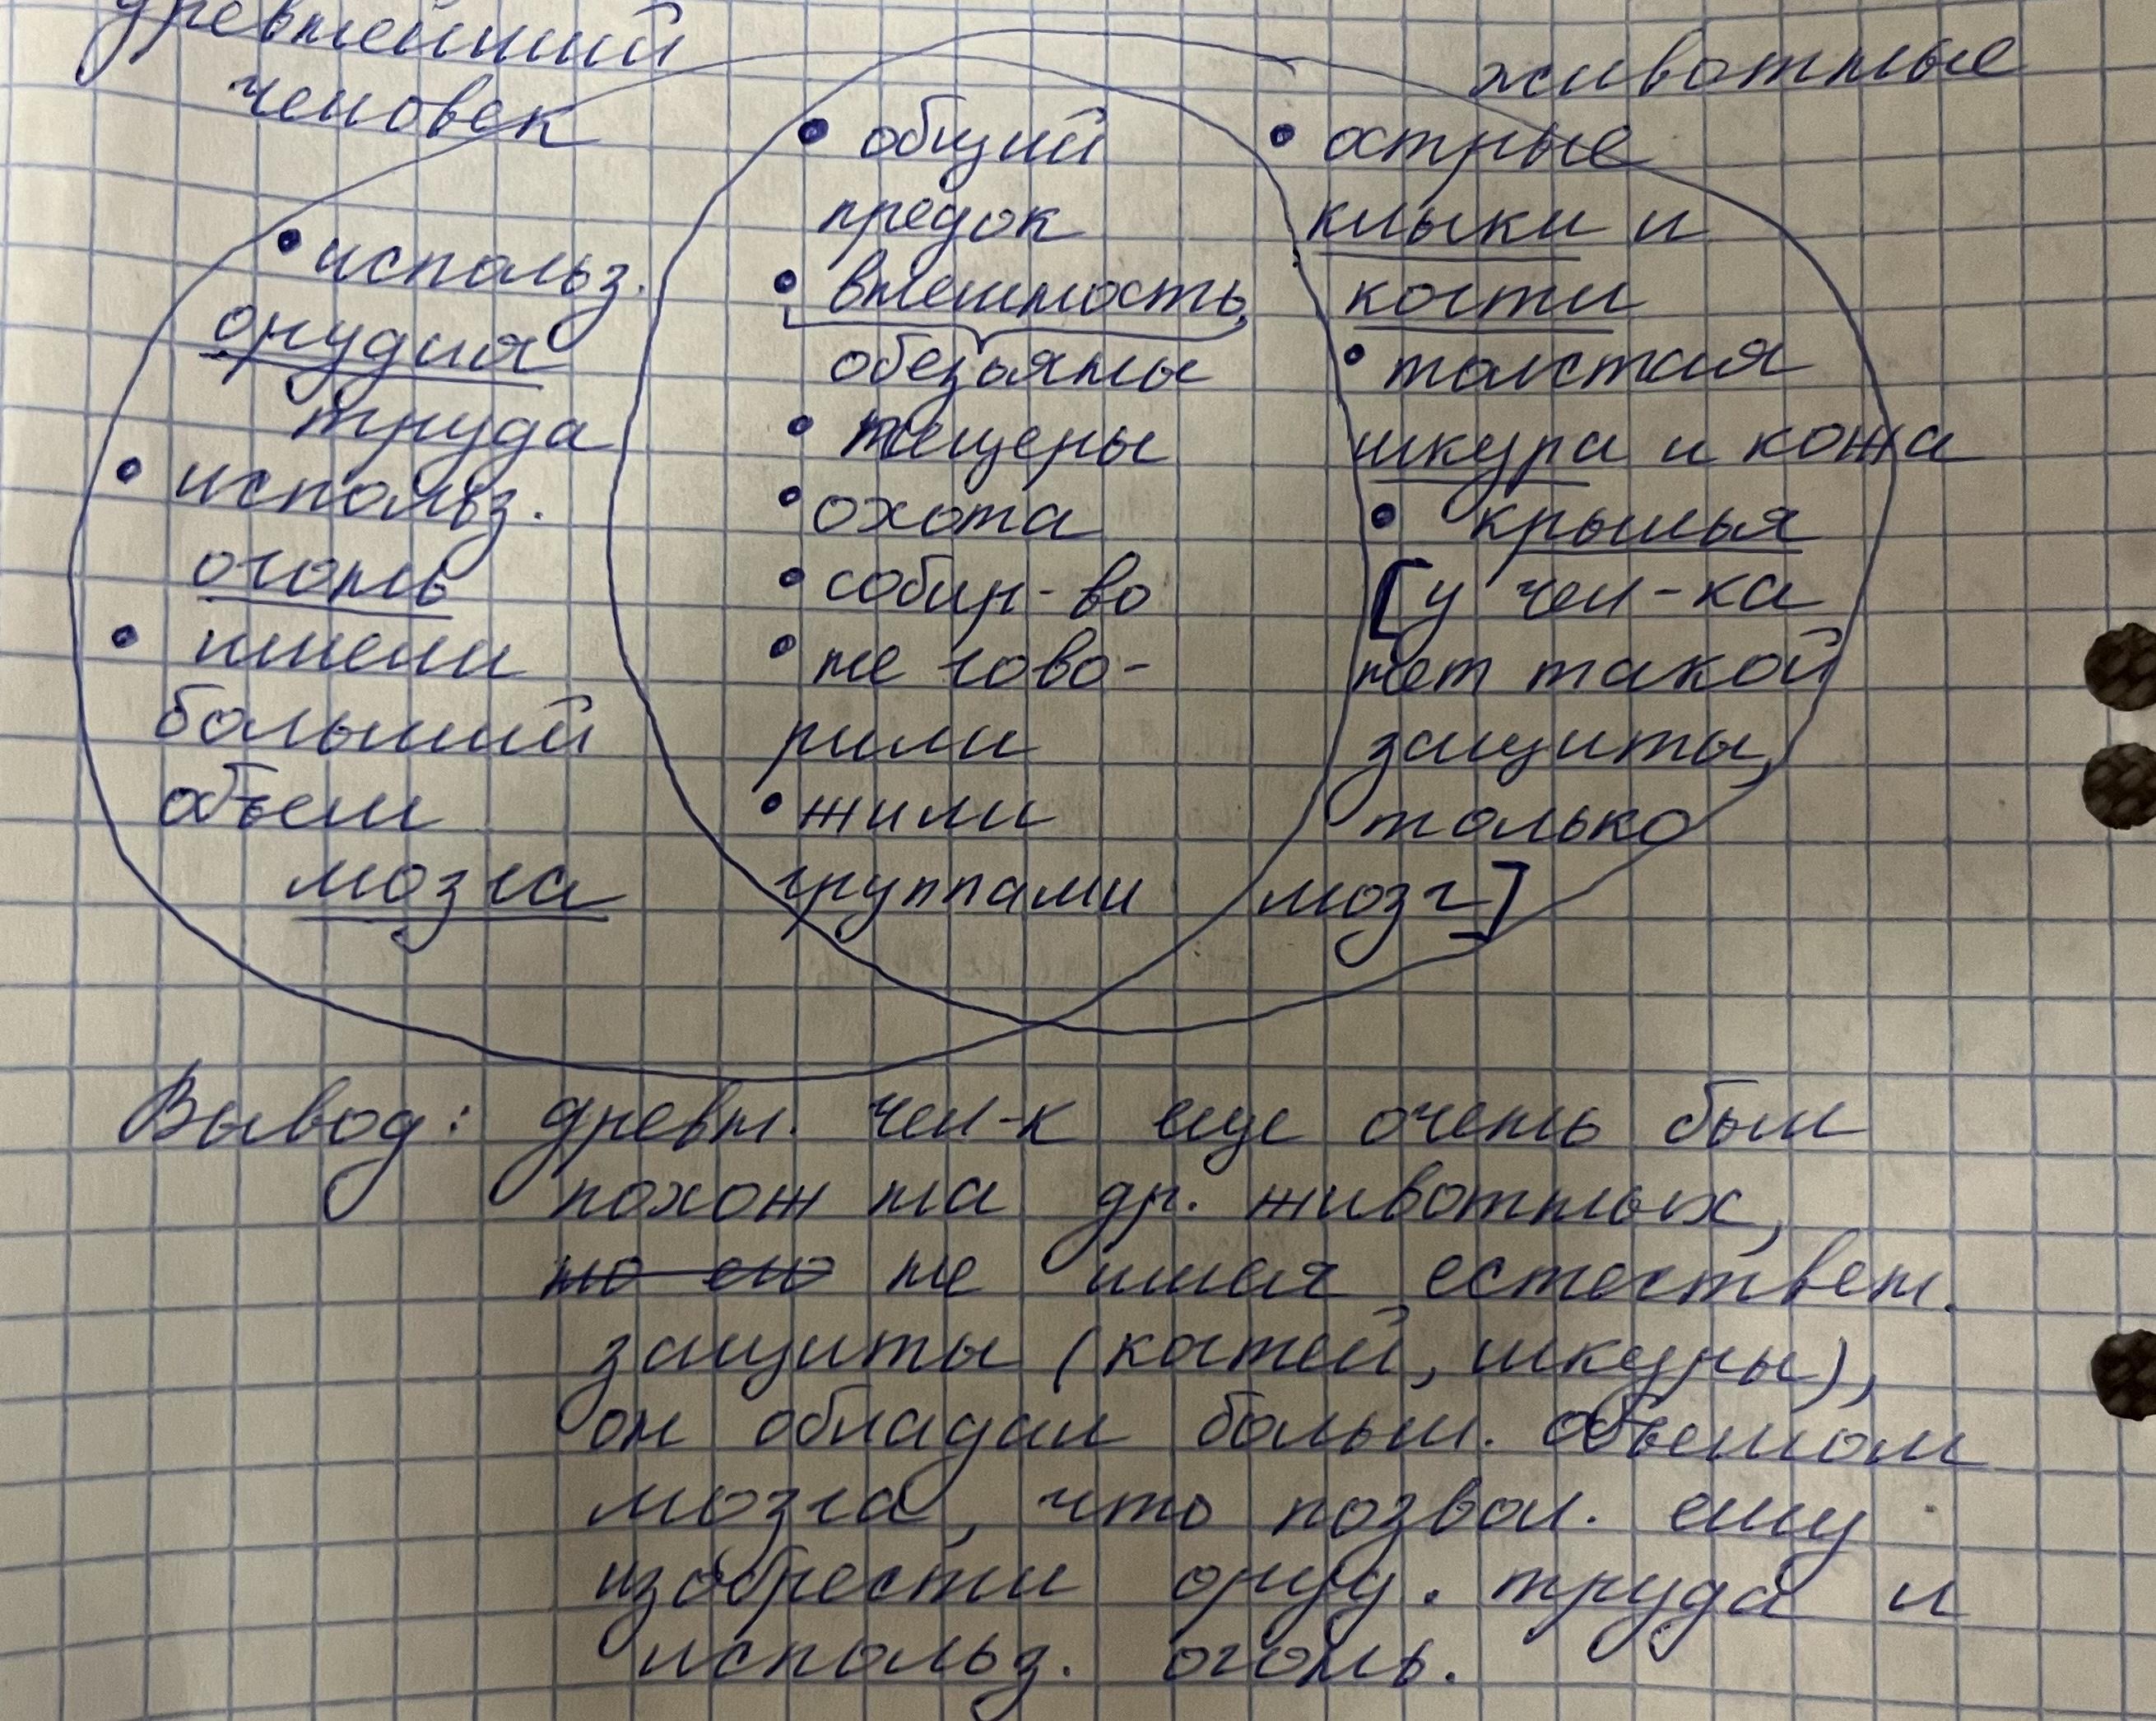 древнейший
человек
• использ.
орудия
труда
• использ.
огонь
• имели
больший
объем
мозга
• общий
предок
• внешность
обезьяны
• пещеры
• охота
• собир-во
• не гово-
рили
• жили
группами
животные
• острые
клыки и
когти
• толстая
шкура и кожа
• крылья
[у чел-ка
нет такой
защиты,
только
мозг]
Вывод: древн. чел-к еще очень был
похож на др. животных,
но его не имея естествен.
защиты (когтей, шкуры),
он обладал больш. объемом
мозга, что позвол. ему
изобрести оруд. труда и
использ. огонь.